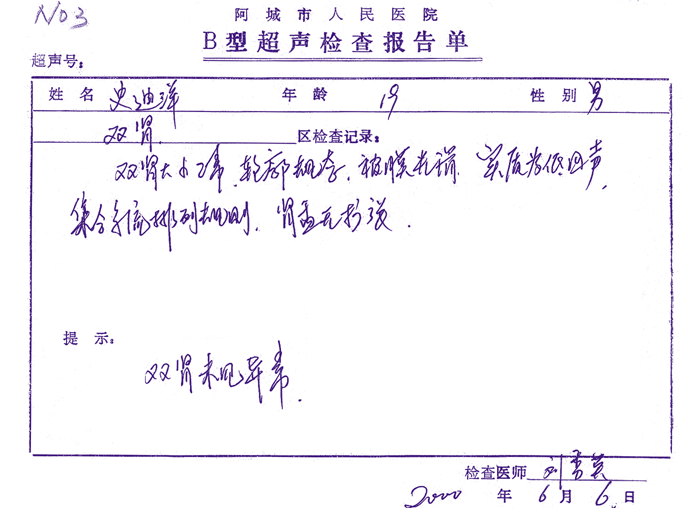 No 3
阿城市人民医院
B型超声检查报告单
超声号：
姓名 史迪洋 年龄 19 性别 男
双肾 区检查记录：
双肾大小正常，轮廓规整，被膜光滑，实质为低回声，
集合系统排列规则，肾盂无扩张．
提示：
双肾未见异常．
检查医师 刘秀英
2000 年 6 月 6 日